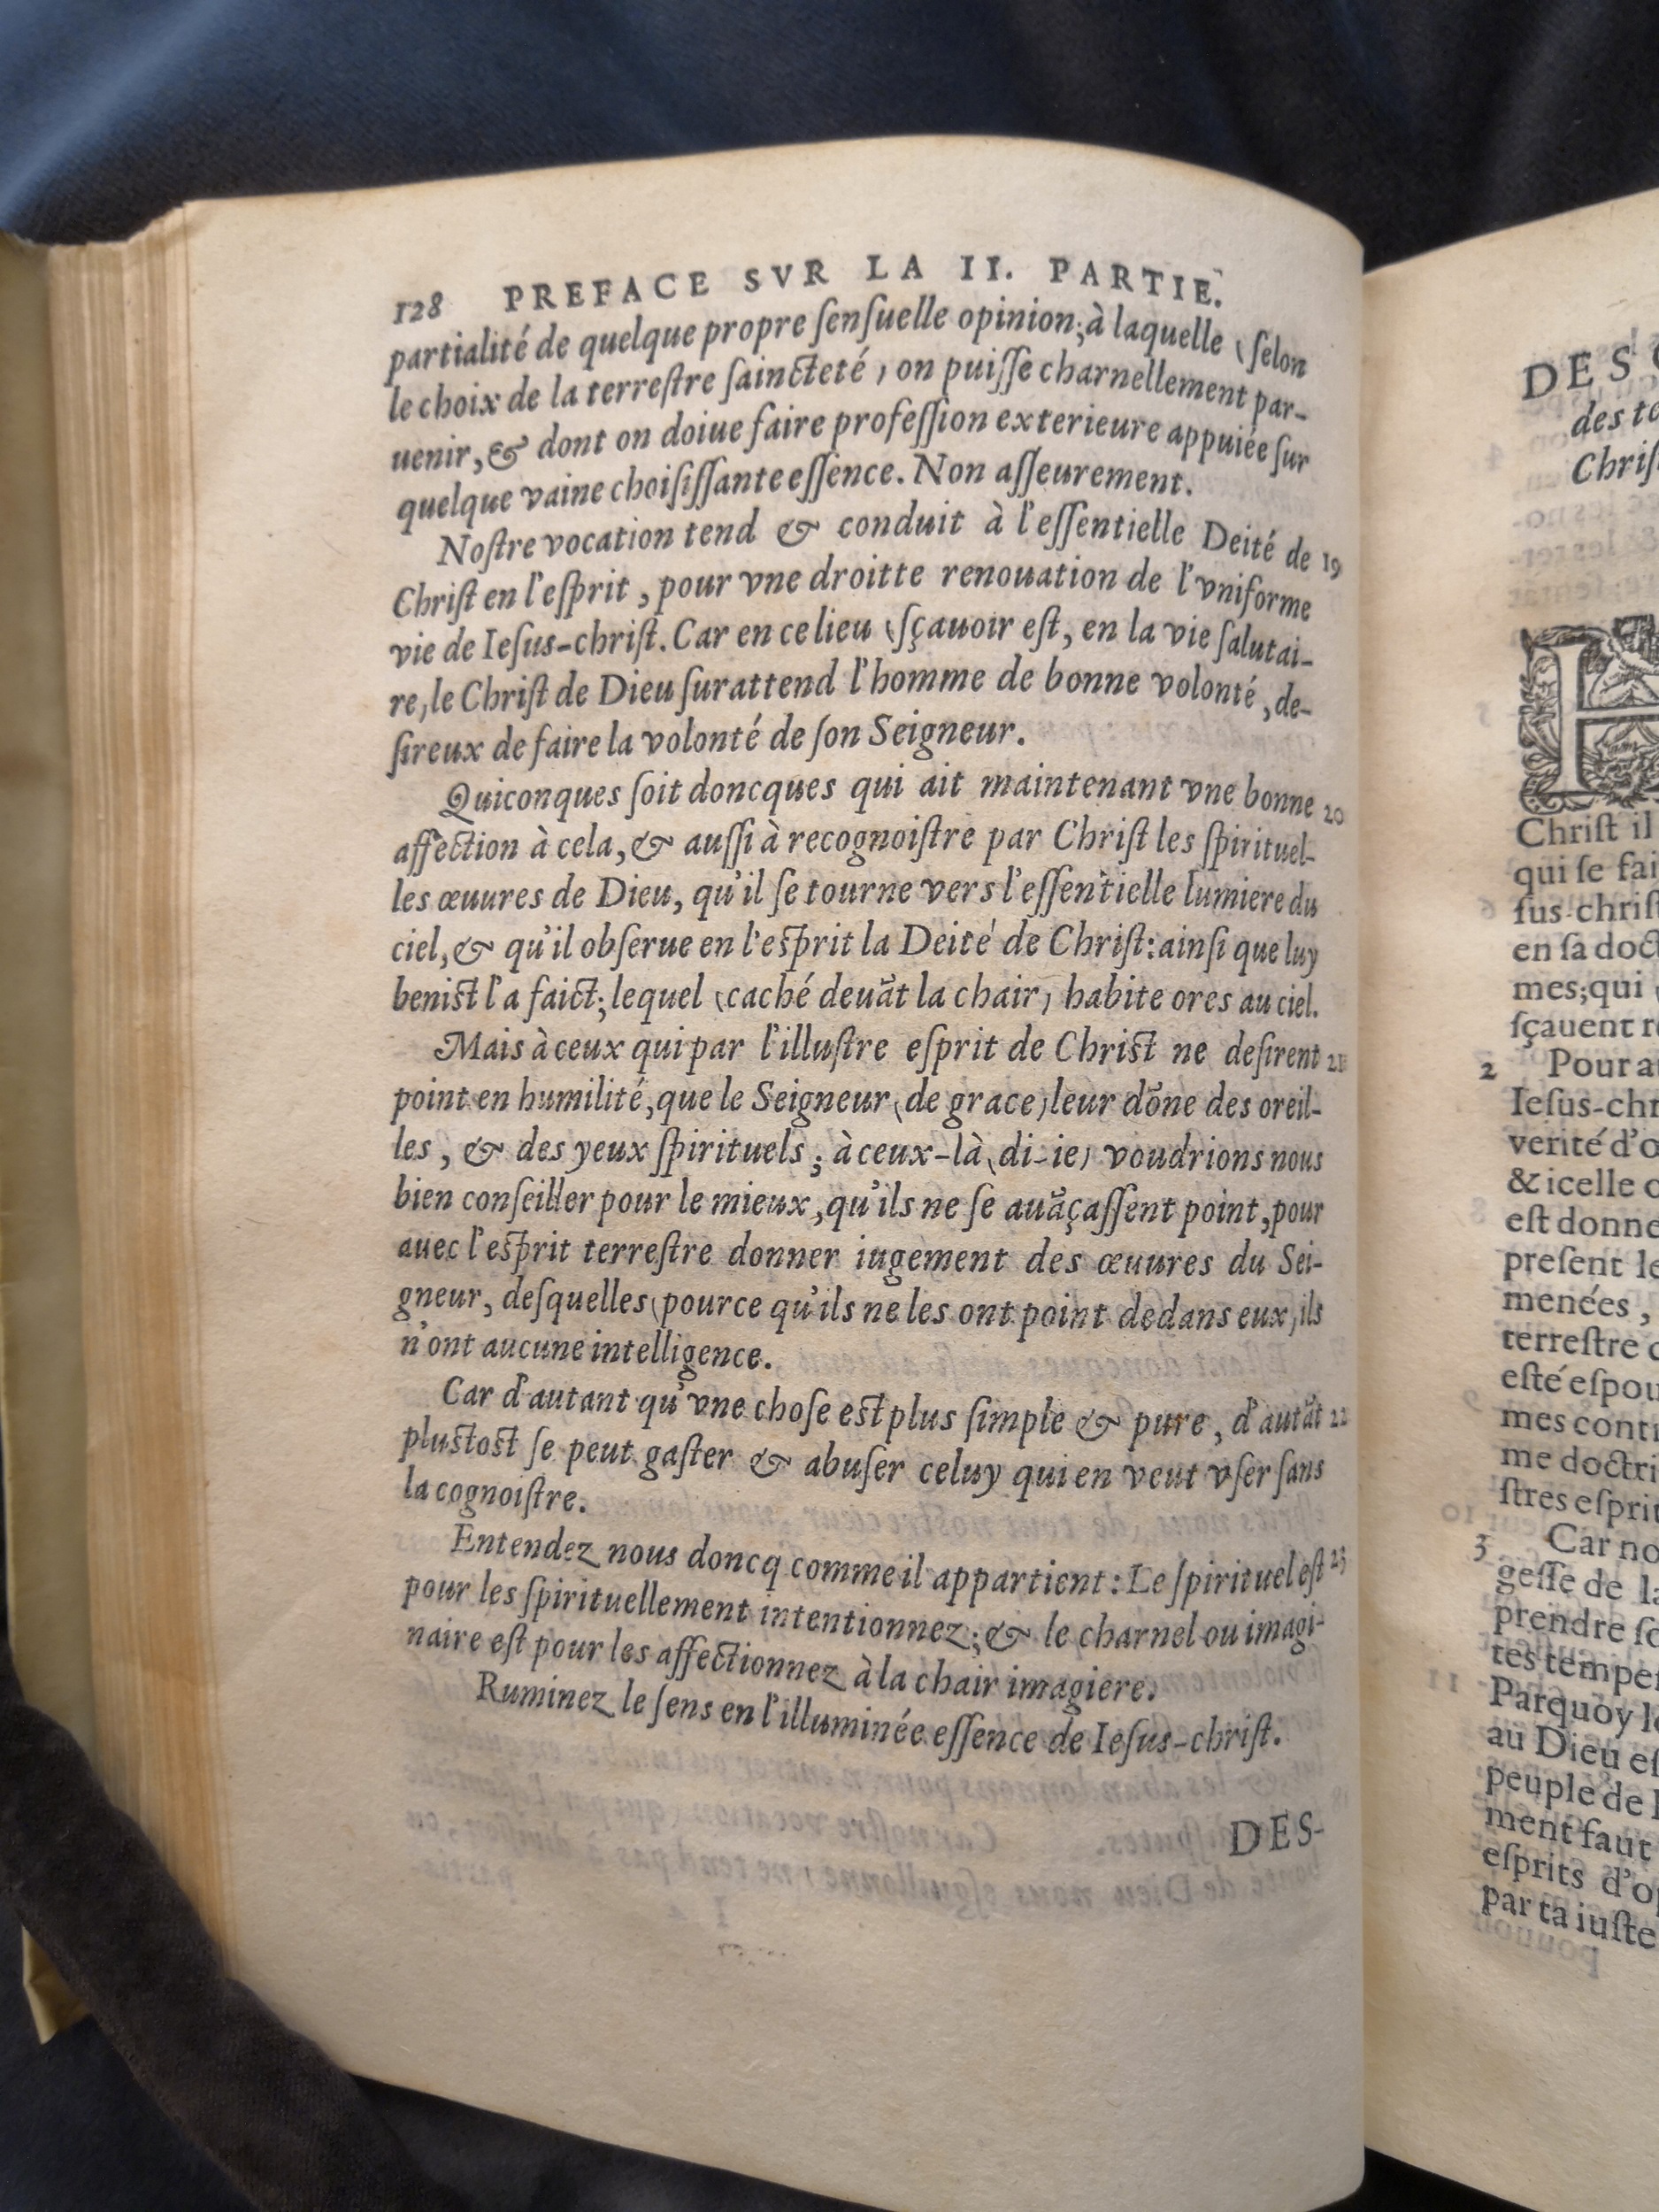 128 PREFACE SVR LA II. PARTIE.
partialité de quelque propre ſenſuelle opinion; à laquelle (ſelon
le choix de la terreſtre ſaincteté) on puiſſe charnellement par-
uenir, & dont on doiue faire profeſſion exterieure appuiée ſur
quelque vaine choiſiſſante eſſence. Non aſſeurement.
Noſtre vocation tend & conduit à l'eſſentielle Deité de 19
Chriſt en l'eſprit, pour vne droitte renouation de l'vniforme
vie de Ieſus-chriſt. Car en ce lieu (ſçauoir eſt, en la vie ſalutai-
re) le Chriſt de Dieu ſurattend l'homme de bonne volonté, de-
ſireux de faire la volonté de ſon Seigneur.
Quiconques ſoit doncques qui ait maintenant vne bonne 20
affection à cela, & auſſi à recognoiſtre par Chriſt les ſpirituel-
les œuures de Dieu, qu'il ſe tourne vers l'eſſentielle lumiere du
ciel, & qu'il obſerue en l'eſprit la Deité de Chriſt: ainſi que luy
beniſt l'a faict; lequel (caché deuāt la chair) habite ores au ciel.
Mais à ceux qui par l'illuſtre eſprit de Chriſt ne deſirent 21
point en humilité, que le Seigneur (de grace) leur dōne des oreil-
les, & des yeux ſpirituels; à ceux-là (di-ie) voudrions nous
bien conſeiller pour le mieux, qu'ils ne ſe auāçaſſent point, pour
auec l'eſprit terreſtre donner iugement des œuures du Sei-
gneur, deſquelles (pource qu'ils ne les ont point dedans eux) ils
n'ont aucune intelligence.
Car d'autant qu'vne choſe eſt plus ſimple & pure, d'autāt 22
pluſtoſt ſe peut gaſter & abuſer celuy qui en veut vſer ſans
la cognoiſtre.
Entendez nous doncq comme il appartient: Le ſpirituel eſt 23
pour les ſpirituellement intentionnez; & le charnel ou imagi-
naire eſt pour les affectionnez à la chair imagiere.
Ruminez le ſens en l'illuminée eſſence de Ieſus-chriſt.
DES-
DES
des
Chriſt il
qui ſe fai
ſus-chriſt
en ſa doct
mes; qui
ſçauent
2 Pour
Ieſus-chr
verité d'o
& icelle
eſt donne
preſent le
menées,
terreſtre
eſté eſpou
mes contr
me doctri
ſtres eſprit
3 Car no
geſſe de la
prendre
tes tempeſ
Parquoy
au Dieu eſ
peuple de
ment faut
eſprits d'o
par ta iuſte